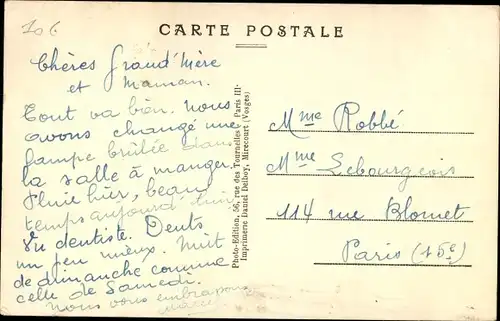 CARTE POSTALE
Chères Grand'Mère
et Maman.
Tout va bien. Nous
avons changé une
lampe brûlée dans
la salle à manger.
Pluie hier, beau
temps aujourd'hui.
Vu dentiste. Dents
un peu mieux. Nuit
de dimanche comme
celle de Samedi.
Nous vous embrassons
Photo-Edition, 56, rue des Tournelles - Paris III·
Imprimerie Daniel Delboy, Mirecourt (Vosges)
Mme Robbé
Mme Lebourgeois
114 rue Blomet
Paris (15e)